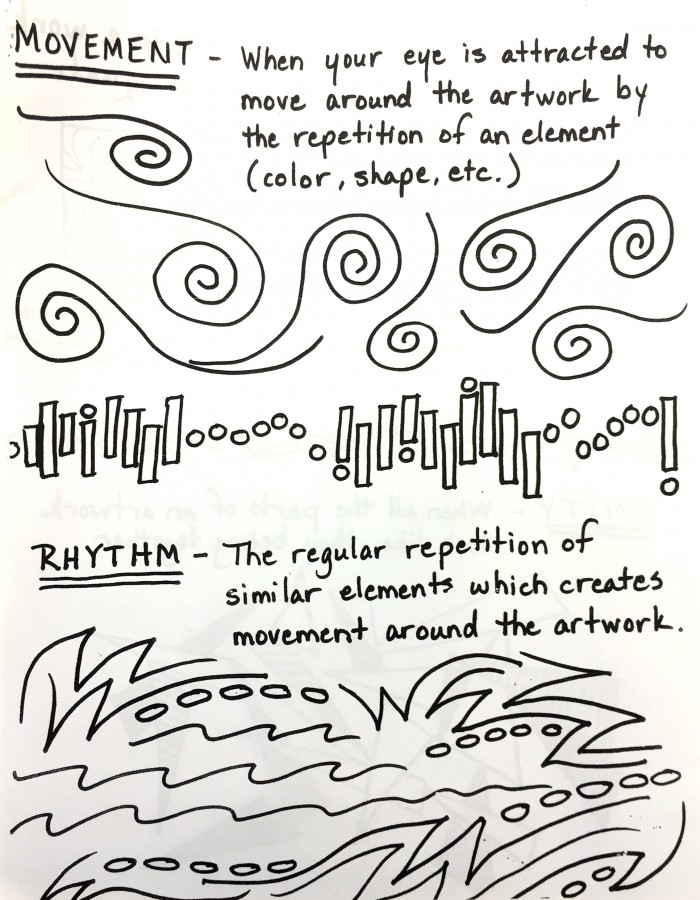 MOVEMENT - When your eye is attracted to
move around the artwork by
the repetition of an element
(color, shape, etc.)
RHYTHM - The regular repetition of
similar elements which creates
movement around the artwork.